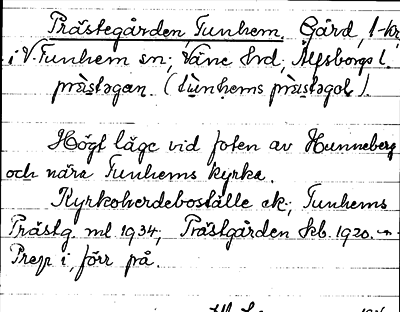 Prästegården, Tunhem, Gård, 1
i V. Tunhem sn; Väne hrd, Älfsborgs l.
prästegan. (tunhems prästegɑl).
Högt läge vid foten av Hunneberg
och nära Tunhems kyrka.
Kyrkoherdeboställe ek.; Tunhems
Prästg. ml. 1934; Prästgården skb. 1920.
Prep i, förr på.